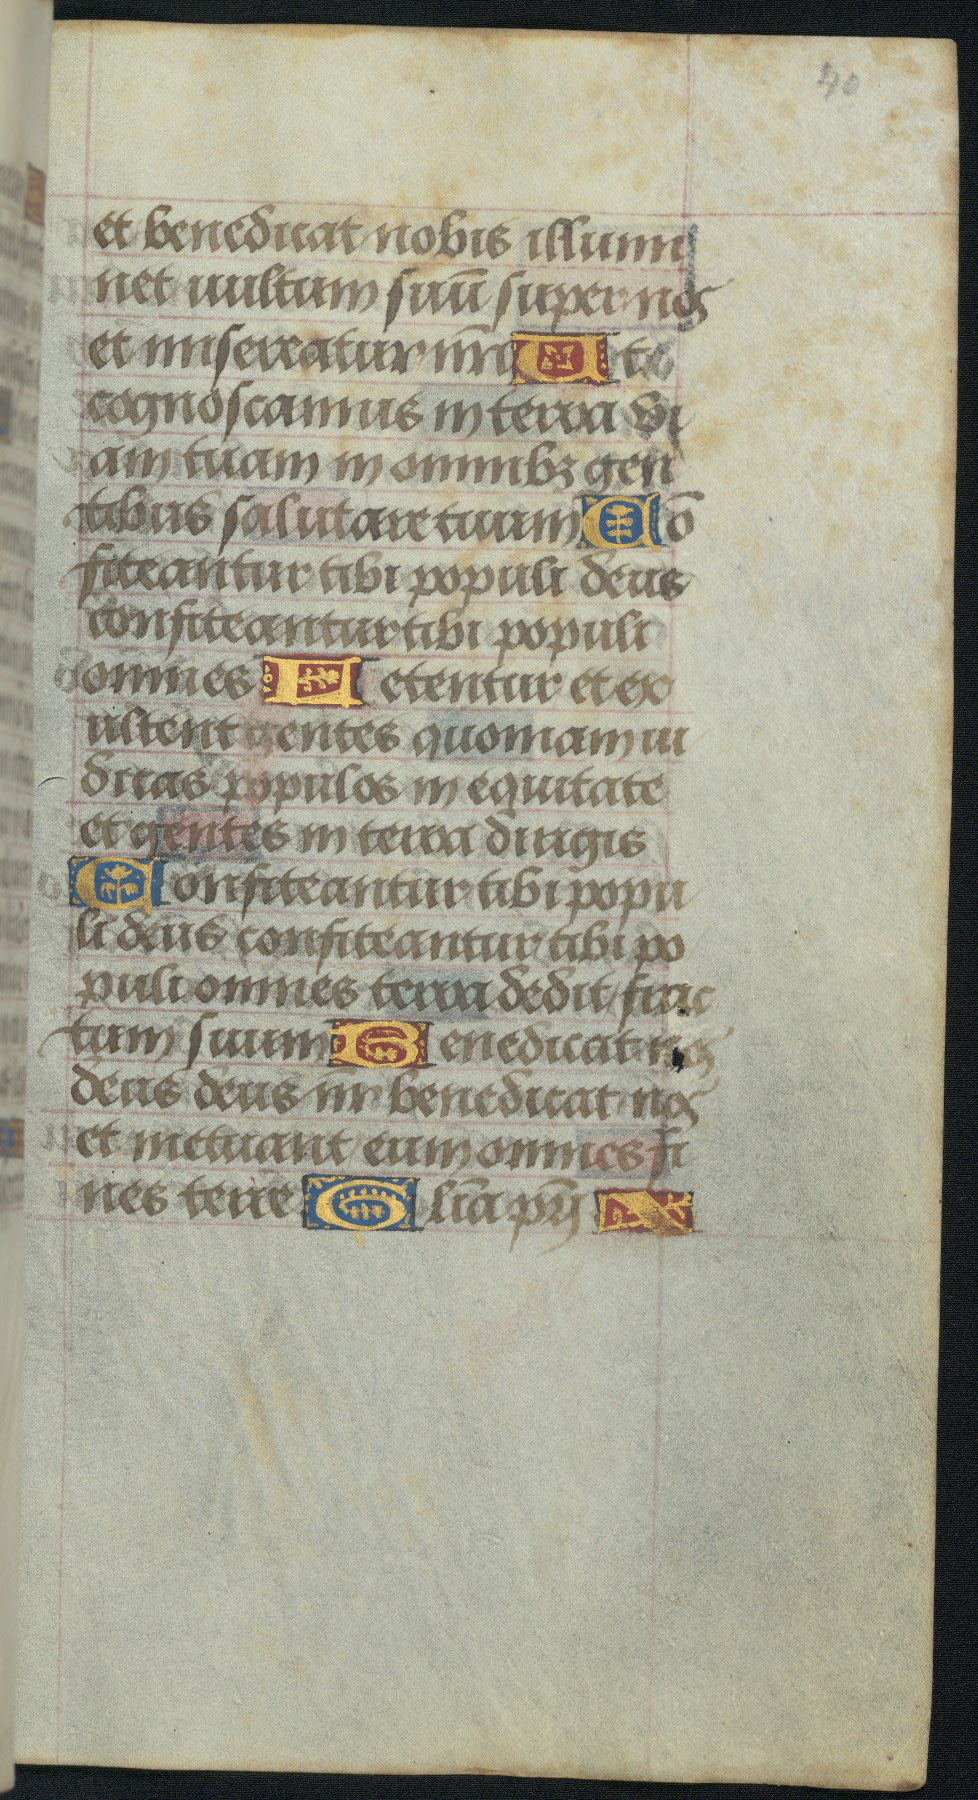 40
et benedicat nobis illumi
net uultum suū super nos
et misereatur nr̄i Ut
cognoscamus in terra vi
am tuam in omnibꝫ gen
tibus salutare tuum Cō
fiteantur tibi populi deus
confiteantur tibi populi
omnes Letentur et ex
ultent gentes quoniam iu
dicas populos in equitate
et gentes in terra dirigis
Confiteantur tibi popu
li deus confiteantur tibi po
puli omnes terra dedit fruc
tum suum Benedicat nos
deus deus nr̄ benedicat nos
et metuant eum omnes fi
nes terre Glīa pr̄i